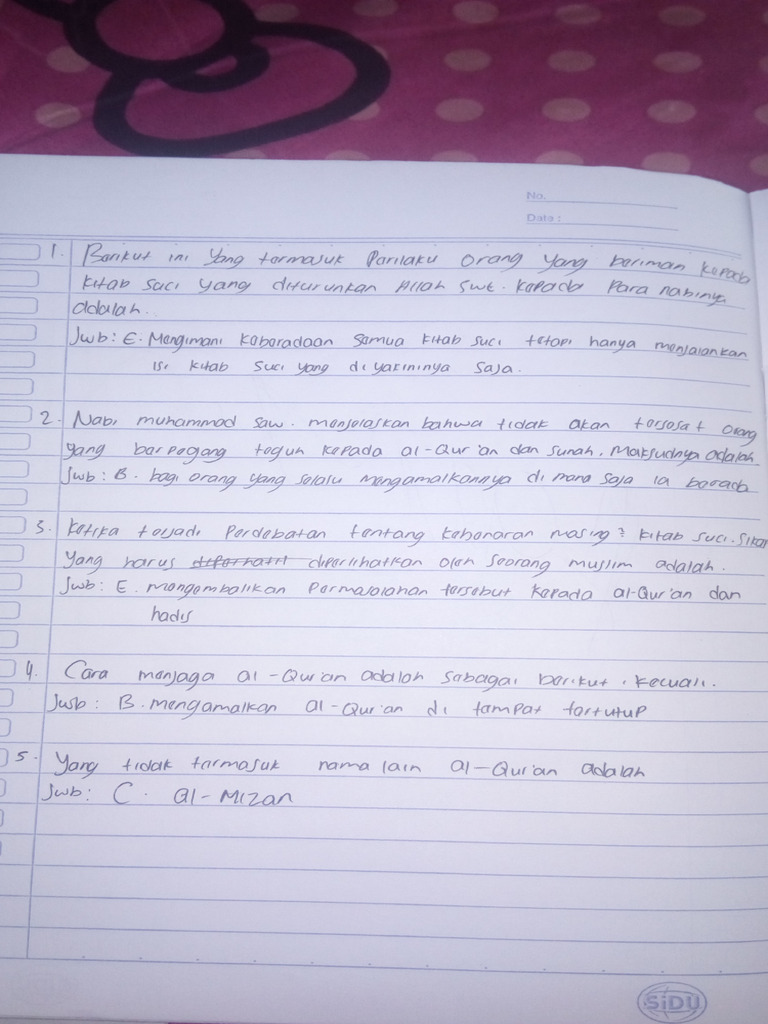 No.
Date :
1. Berikut ini yang termasuk Perilaku orang yang beriman kepada
kitab suci yang diturunkan Allah swt. kepada Para nabinya
adalah..
Jwb : E. Mengimani keberadaan semua kitab suci tetapi hanya menjalankan
isi kitab suci yang di yakininya saja.
2. Nabi muhammad saw. menjelaskan bahwa tidak akan tersesat orang
yang berpegang teguh kepada al-Qur'an dan sunah. Maksudnya adalah
Jwb : B. bagi orang yang selalu mengamalkannya di mana saja ia berada
3. Ketika terjadi Perdebatan tentang kebenaran masing² kitab suci. Sikap
yang harus diperlihatkan oleh seorang muslim adalah.
Jwb : E. mengembalikan Permasalahan tersebut kepada al-Qur'an dan
hadis
4. Cara menjaga al-Qur'an adalah sebagai berikut, kecuali.
Jwb : B. mengamalkan al-Qur'an di tempat tertutup
5. Yang tidak termasuk nama lain al-Qur'an adalah
Jwb : C. al-Mizan
SiDU